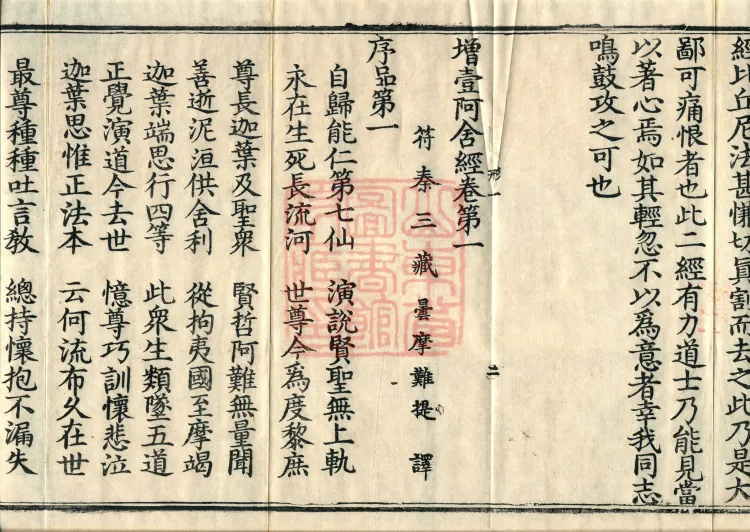 經比丘尼法甚慊切真割而去之此乃是大
鄙可痛恨者也此二經有力道士乃能見當
以著心焉如其輕忽不以為意者幸我同志
鳴鼓攻之可也
形一
二
增壹阿舍經卷第一
符秦三藏曇摩難提譯
序品第一
自歸能仁第七仙 演說賢聖無上軌
永在生死長流河 世尊今為度黎庶
尊長迦葉及聖衆 賢哲阿難無量聞
善逝泥洹供舍利 從拘夷國至摩竭
迦葉端思行四等 此衆生類墜五道
正覺演道今去世 憶尊巧訓懷悲泣
迦葉思惟正法本 云何流布久在世
最尊種種吐言教 總持懷抱不漏失